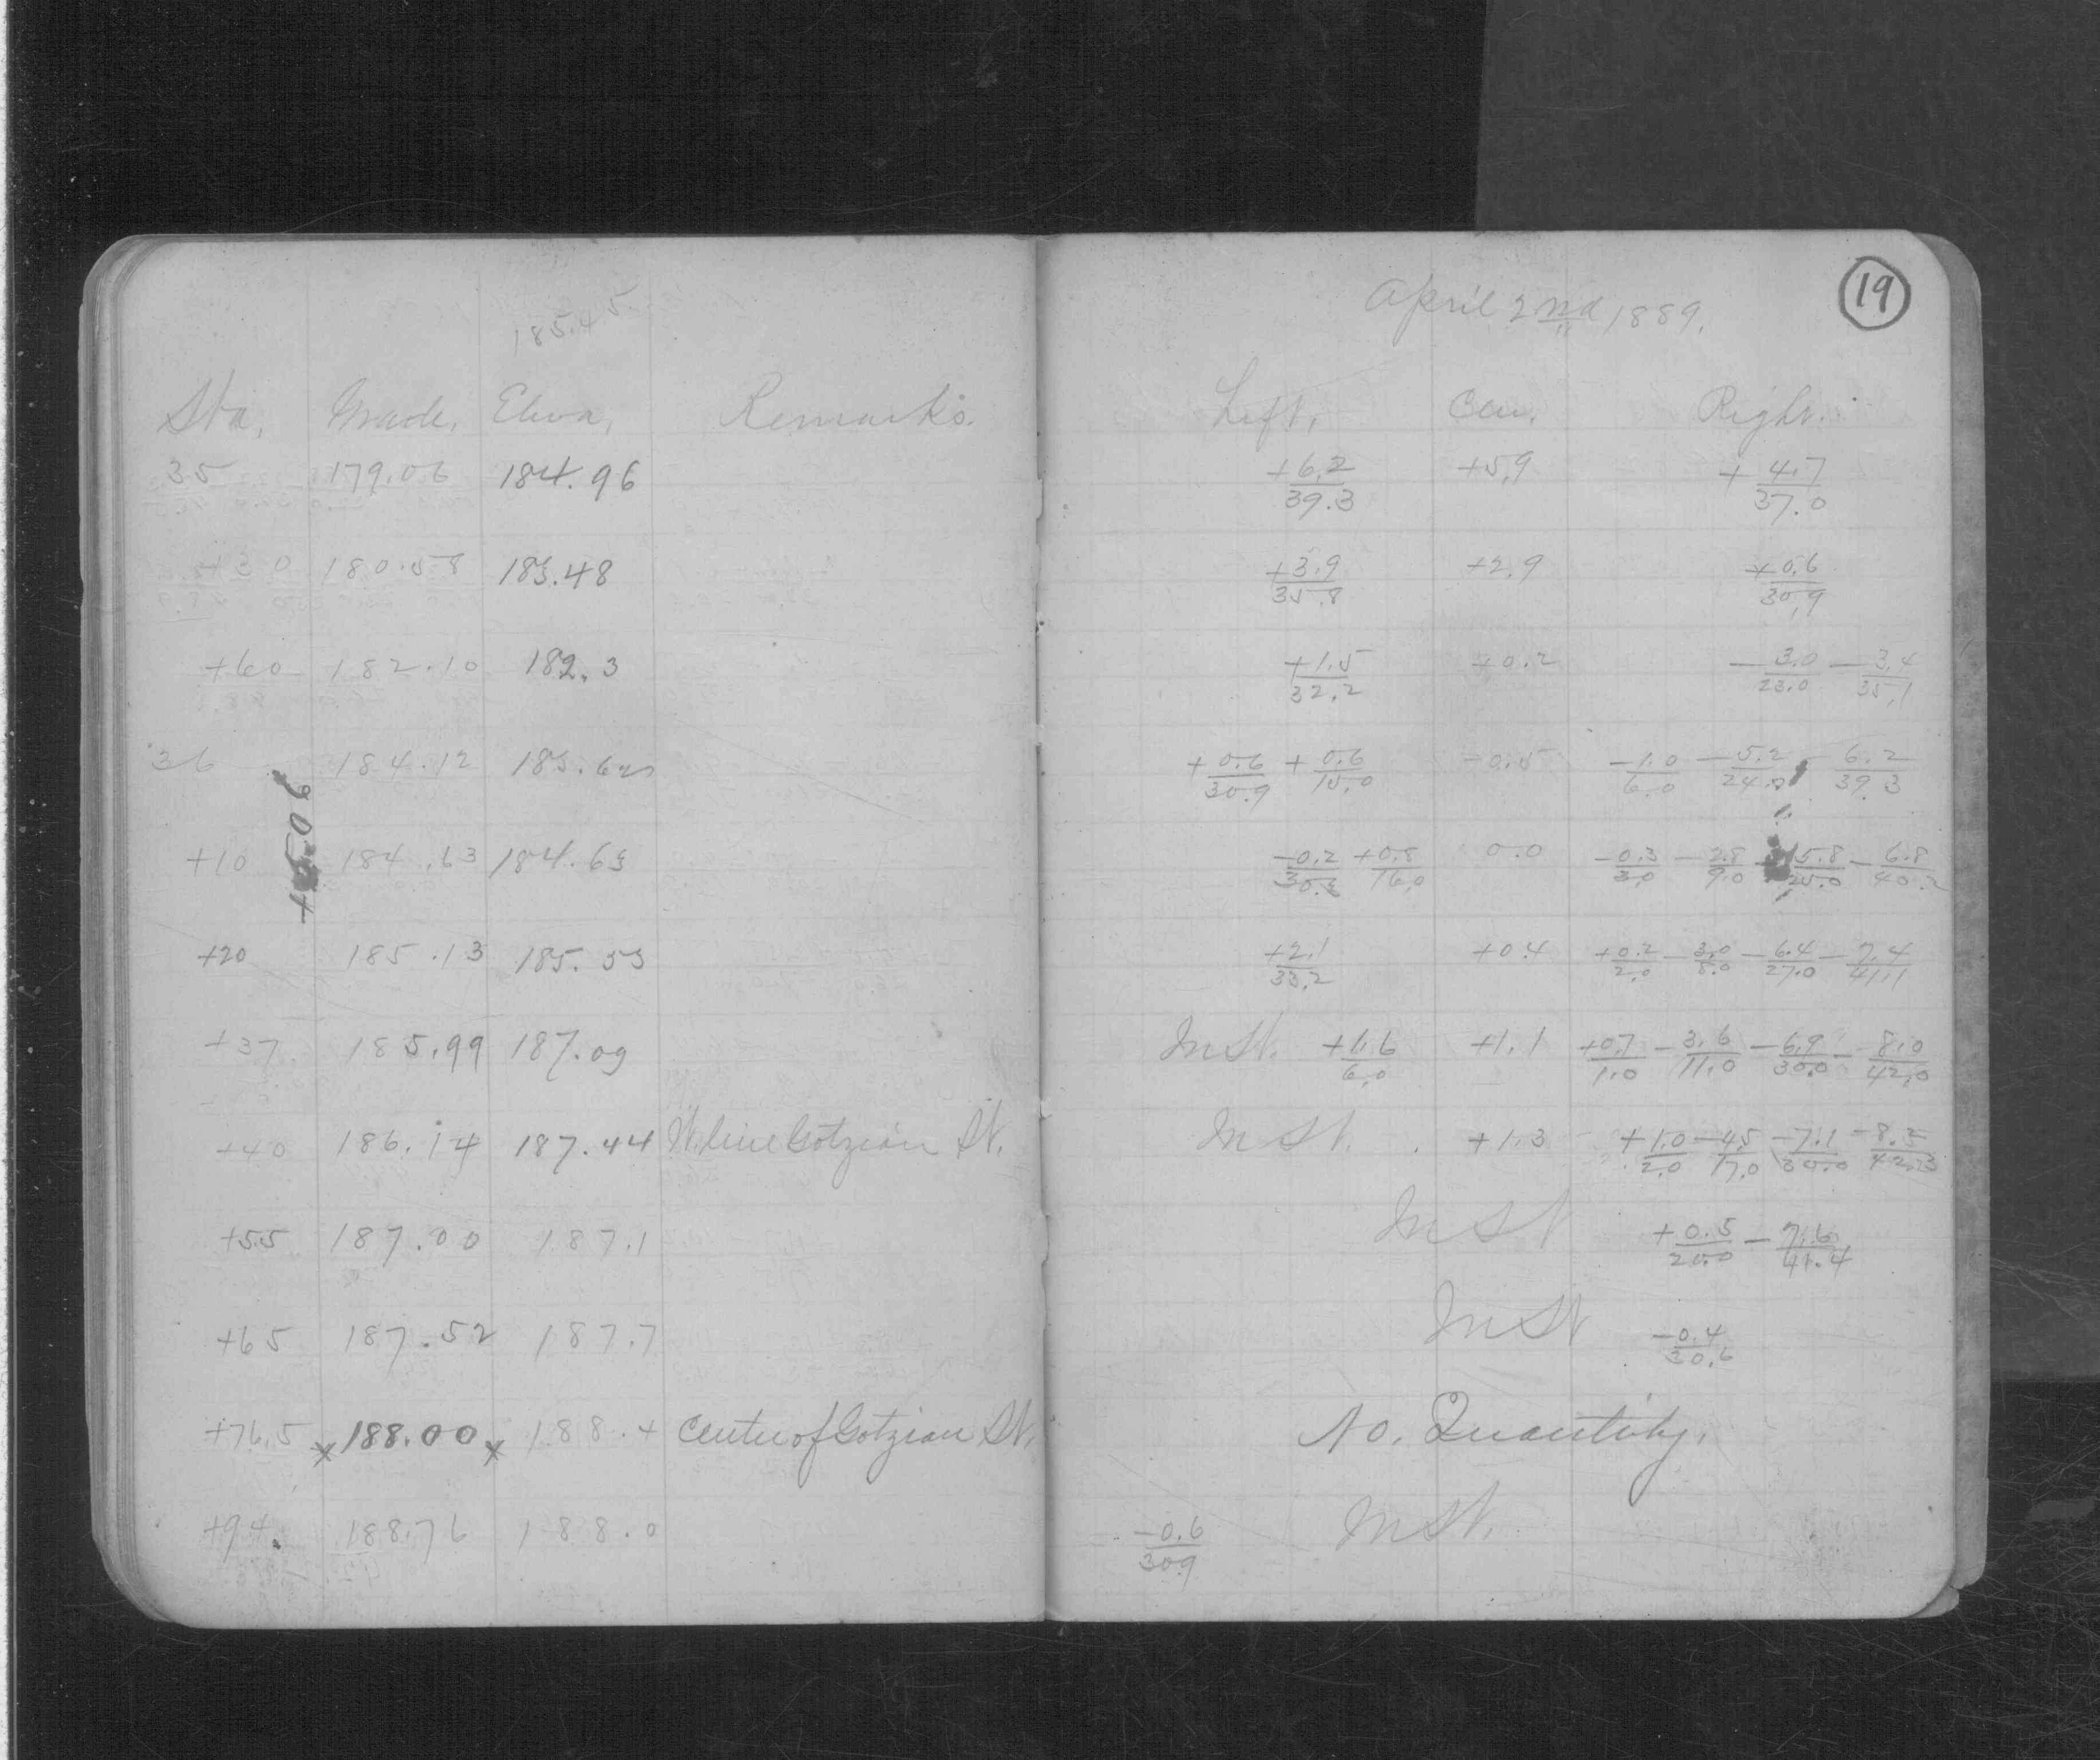 185.45
Sta. Grade. Eleva. Remarks.
35 179.06 184.96
+30 180.58 183.48
+60 182.10 182.3
36 184.12 183.62
+10 184.63 184.63
+20 185.13 185.53
+37 185.99 187.09
+40 186.14 187.44 W. line Gotzian St.
+55 187.00 187.1
+65 187.52 187.7
+76.5 x 188.00 x 188.4 Center of Gotzian St.
+94. 188.76 188.0
19
April 2nd 1889.
Left. Cen. Right.
+6.2/39.3 +5.9 +4.7/37.0
+3.9/35.8 +2.9 +0.6/30.9
+1.5/32.2 +0.2 -3.0/23.0 -3.4/35.1
+0.6/30.9 +0.6/15.0 -0.5 -1.0/6.0 -5.2/24.0 -6.2/39.3
-0.2/30.3 +0.8/16.0 0.0 -0.3/3.0 -2.8/9.0 -5.8/25.0 -6.8/40.2
+2.1/33.2 +0.4 +0.2/2.0 -3.0/8.0 -6.4/27.0 -7.4/41.1
In St. +1.6/6.0 +1.1 +0.7/1.0 -3.6/11.0 -6.9/30.0 -8.0/42.0
In St. +1.3 +1.0/2.0 -4.5/17.0 -7.1/30.0 -8.2/42.3
In St +0.5/20.0 -7.6/41.4
In St -0.4/30.6
No. Quantity.
-0.6/30.9 In St.